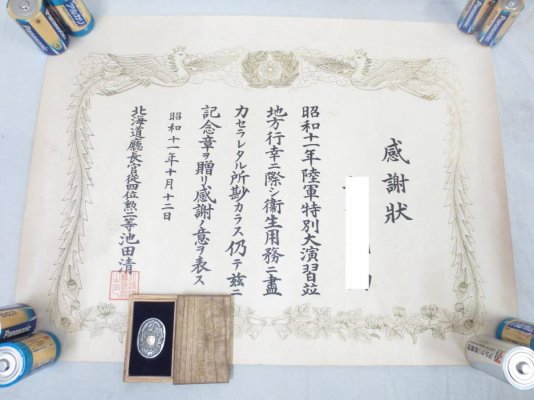 感謝狀
昭和十一年陸軍特別大演習竝
地方行幸ニ際シ衞生用務ニ盡
力セラレタル所尠カラス仍テ玆ニ
記念章ヲ贈リ感謝ノ意ヲ表ス
昭和十一年十月十二日
北海道廳長官從四位勲二等池田清
Panasonic
Panasonic
Panasonic
Panasonic